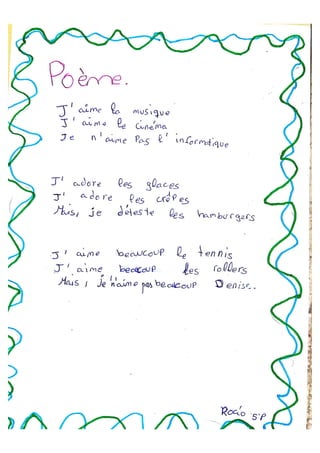 Poème.
J'aime la musique
J'aime le cinéma
Je n'aime pas l'informatique
J'adore les glaces
J'adore les crêpes
Mais, je déteste les hamburgers
J'aime beaucoup le tennis
J'aime beaucoup les rollers
Mais, je n'aime pas beaucoup Denise..
Rocío 5ºP